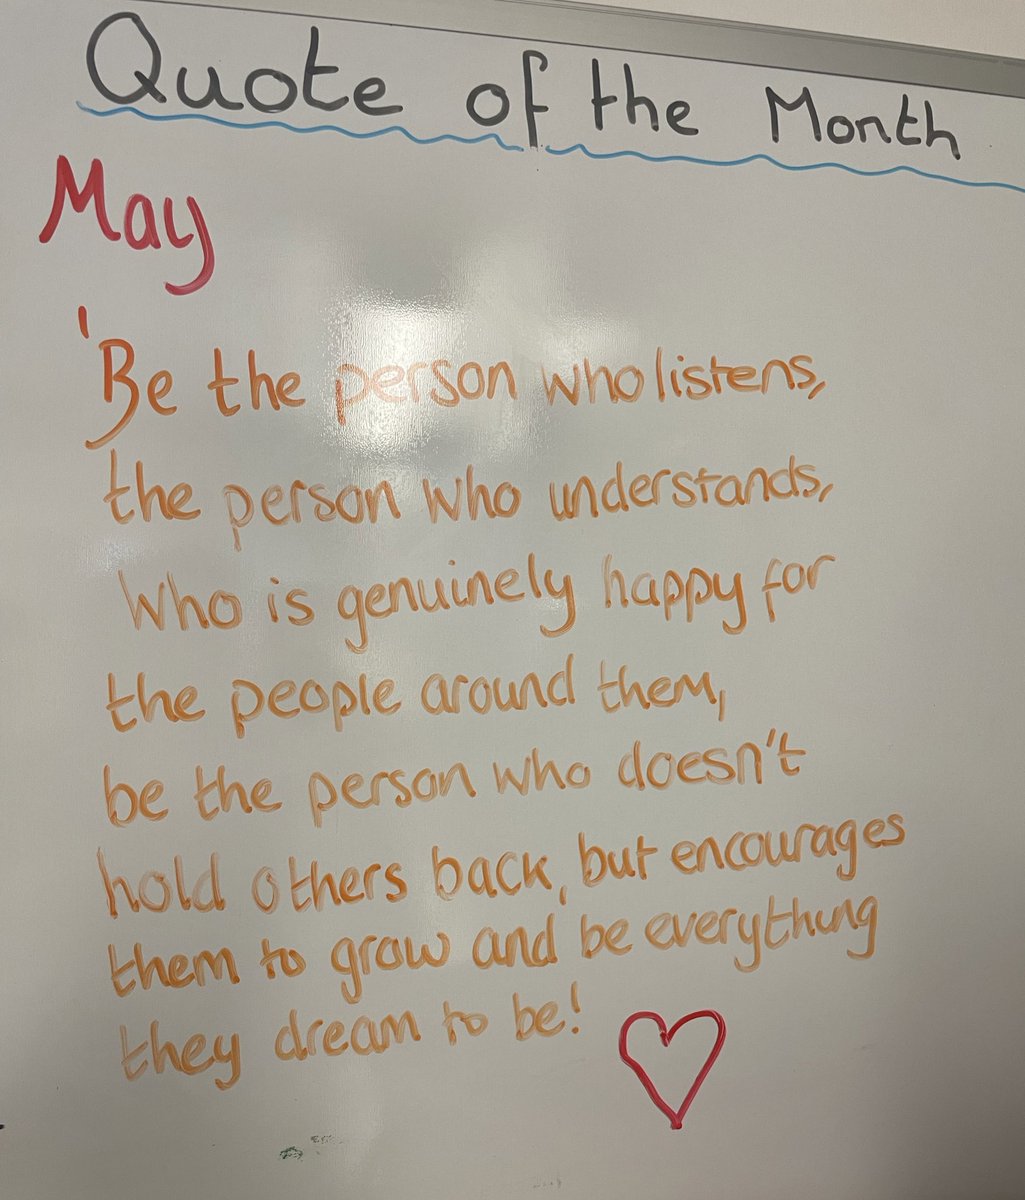 Quote of the Month
May
'Be the person who listens,
the person who understands,
Who is genuinely happy for
the people around them,
be the person who doesn't
hold others back, but encourages
them to grow and be everything
they dream to be!